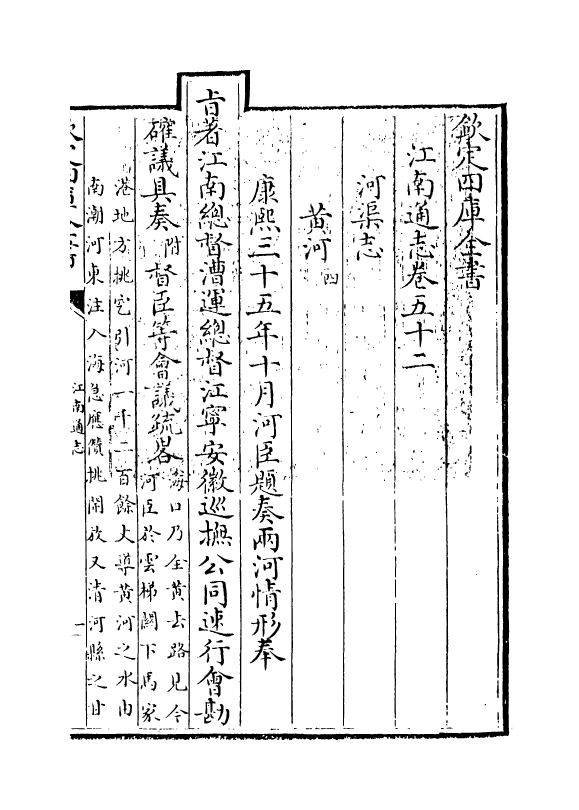 欽定四庫全書
江南通志卷五十二
河渠志
黄河四
康熙三十五年十月河臣題奏兩河情形奉
旨著江南總督漕運總督江寧安徽巡撫公同速行會勘
確議具奏附督臣等會議疏畧海口乃全黄去路見今
河臣於雲梯關下馬家
港地方挑空引河一千二百餘丈導黄河之水由
南潮河東注入海急應儹挑開放又清河縣之甘
江南通志
一